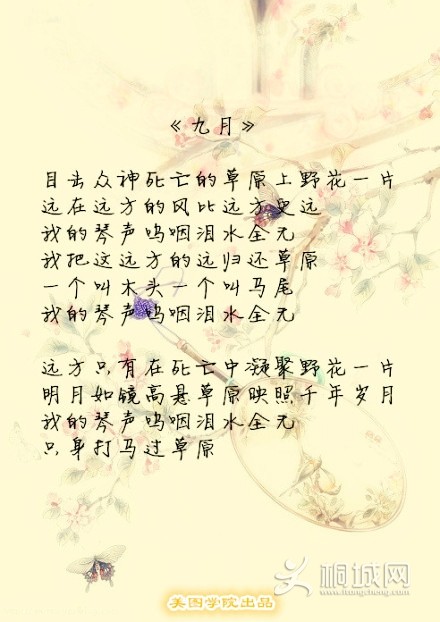 《九月》
目击众神死亡的草原上野花一片
远在远方的风比远方更远
我的琴声呜咽泪水全无
我把这远方的远归还草原
一个叫木头一个叫马尾
我的琴声呜咽泪水全无
远方只有在死亡中凝聚野花一片
明月如镜高悬草原映照千年岁月
我的琴声呜咽泪水全无
只身打马过草原
桐城网
www.tongcheng.com
美图学院出品